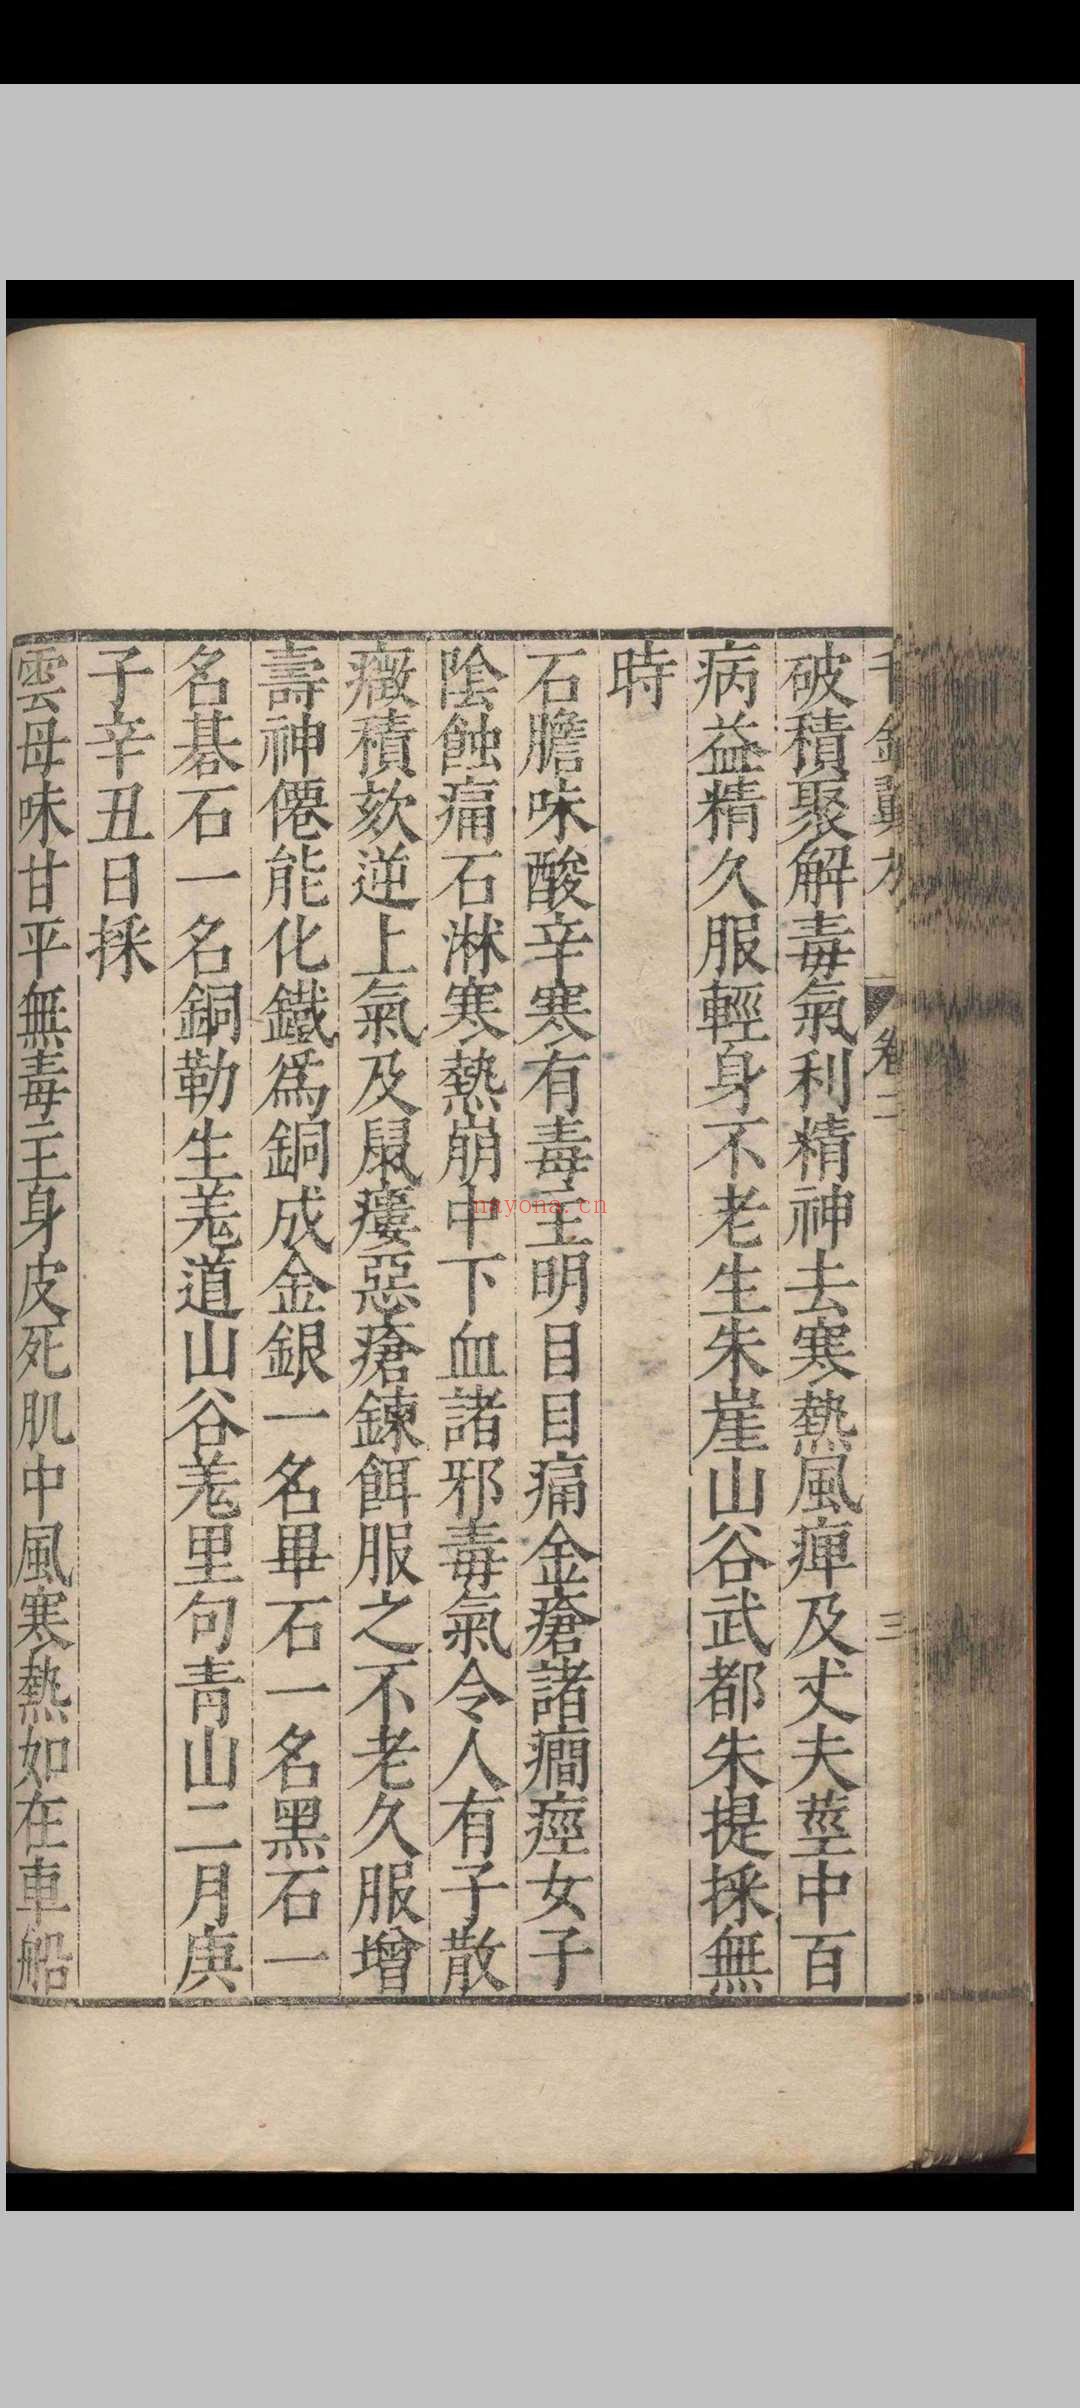 千金翼方 卷二 三
破積聚解毒氣利精神去寒熱風痺及丈夫莖中百
病益精久服輕身不老生朱崖山谷武都朱提採無
時
石膽味酸辛寒有毒主明目目痛金瘡諸癎痙女子
陰蝕痛石淋寒熱崩中下血諸邪毒氣令人有子散
癥積欬逆上氣及鼠瘻惡瘡鍊餌服之不老久服增
壽神僊能化鐵爲銅成金銀一名畢石一名黑石一
名碁石一名銅勒生羗道山谷羗里句青山二月庚
子辛丑日採
雲母味甘平無毒主身皮死肌中風寒熱如在車船
nayona.cn